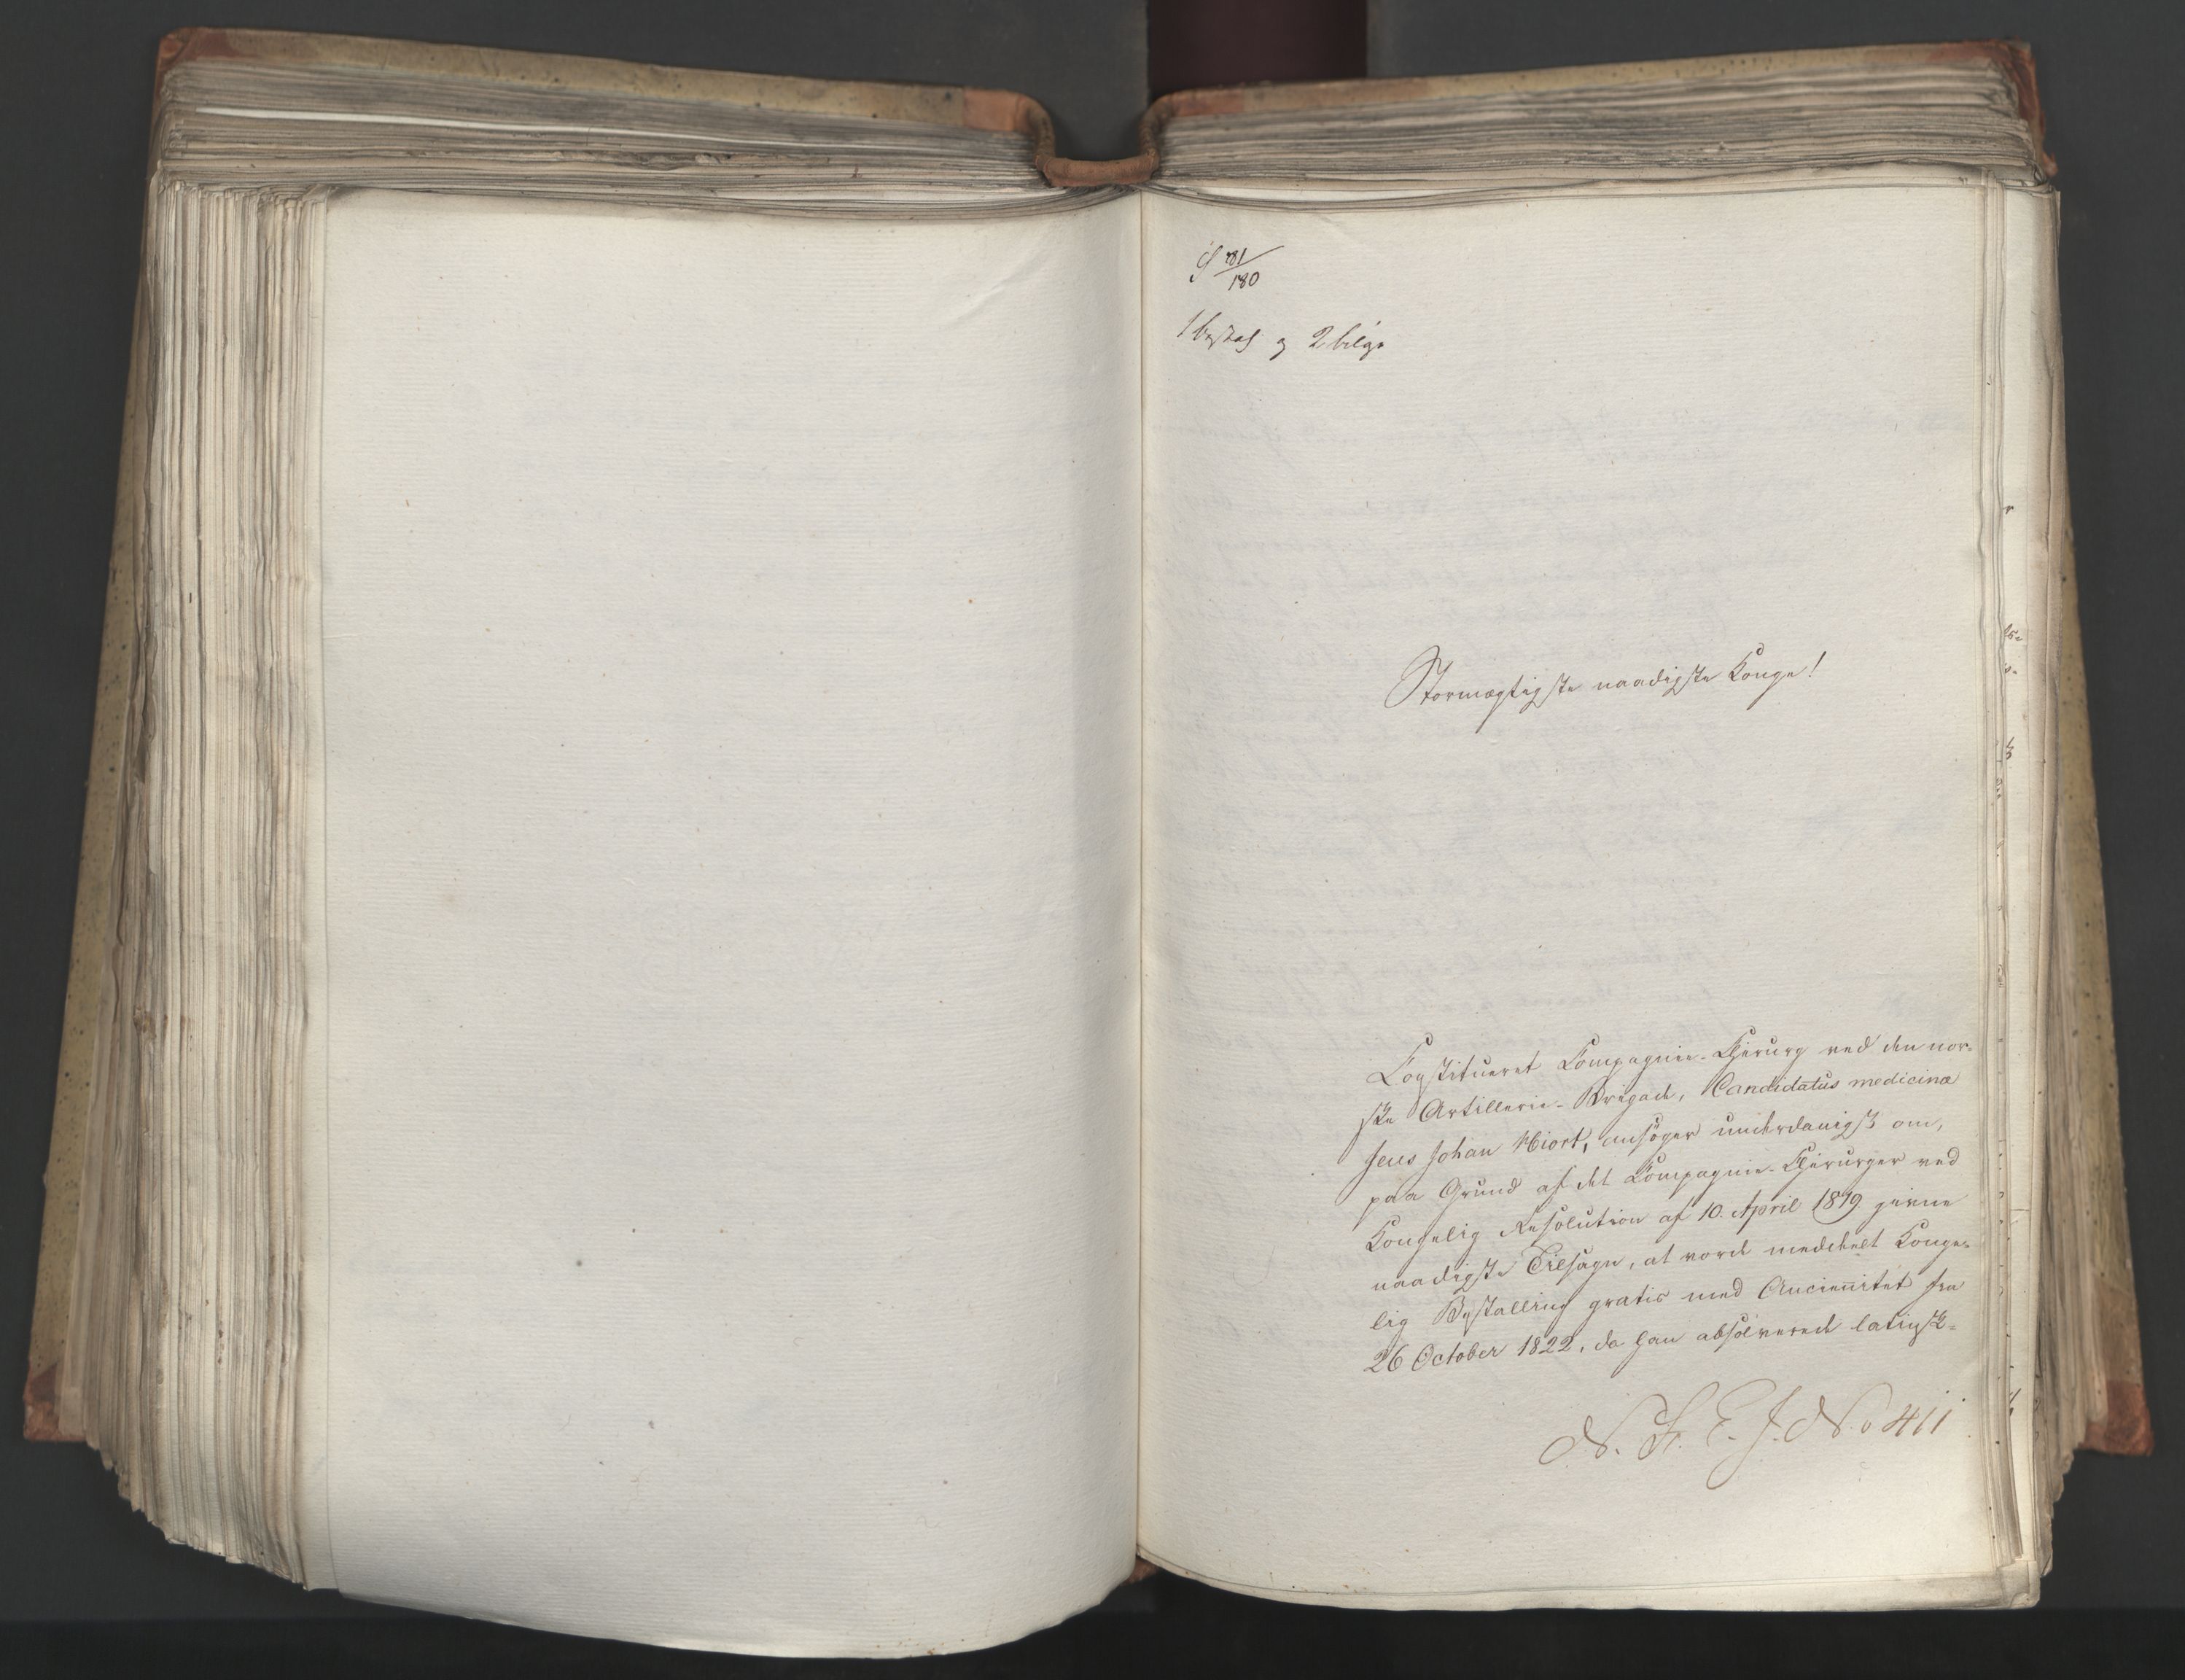 S 181/180
1 besked og 2 bilge
Stormægtigste naadigste Konge!
Constitueret Compagnie-Chirurg ved den nor-
ske Artillerie-Brigade, Candidatus medicinæ
Jens Johan Hiort, ansøger underdanigst om,
paa Grund af det Compagnie-Chirurger ved
Kongelig Resolution af 10. April 1819 givne
naadigste Tilsagn, at vorde meddeelt Konge-
lig Bestalling gratis med Anciennitet fra
26 October 1822, da han absolverede latinsk-
N. St. E. J. No 411